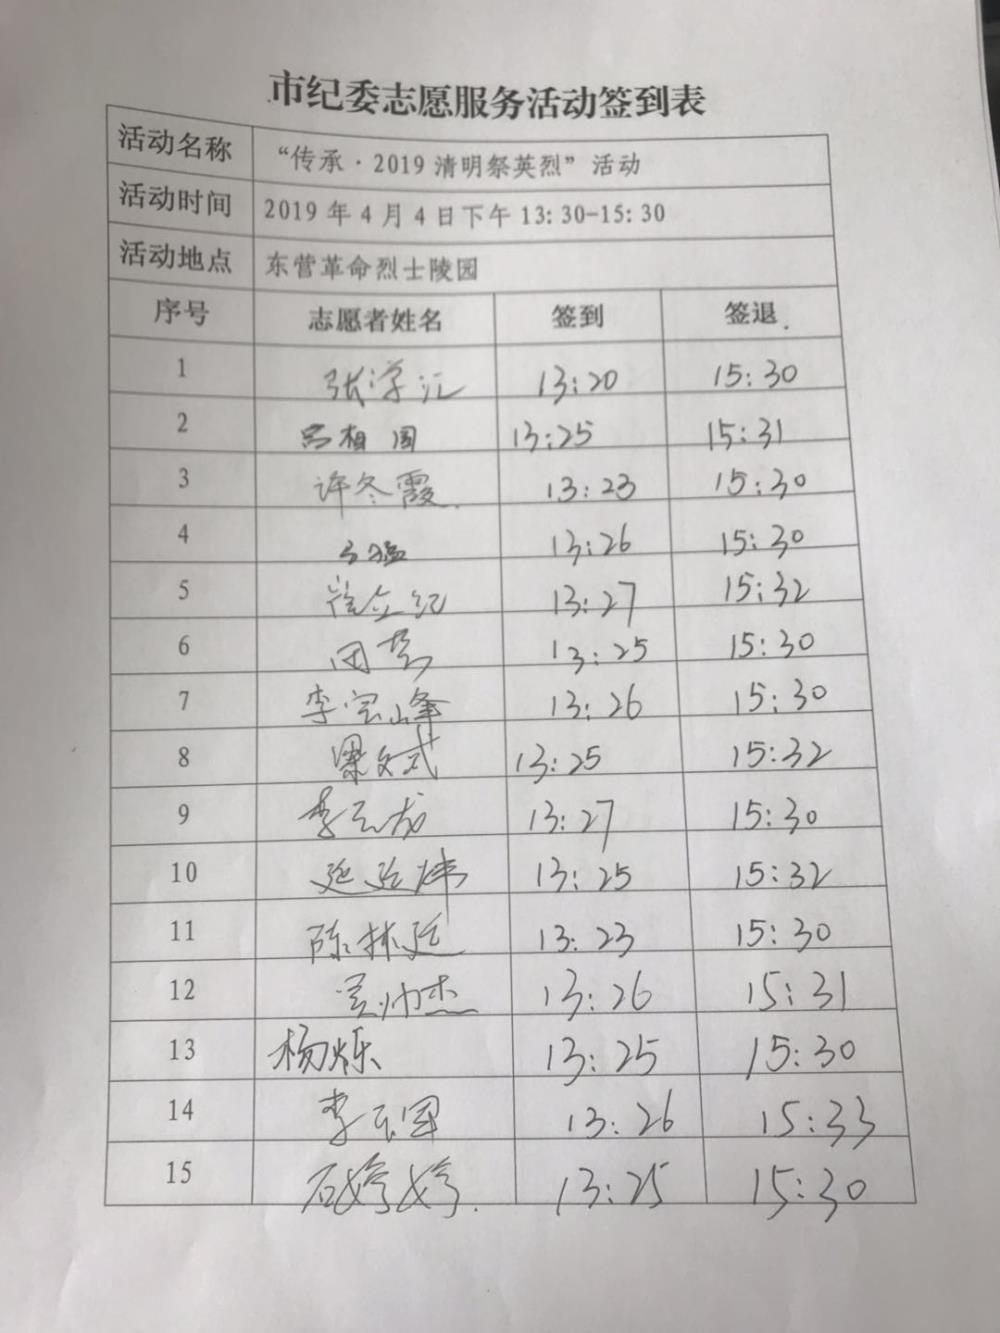 市纪委志愿服务活动签到表
活动名称 “传承·2019 清明祭英烈”活动
活动时间 2019 年 4 月 4 日下午 13:30-15:30
活动地点 东营革命烈士陵园
序号 志愿者姓名 签到 签退
1 张学汇 13:20 15:30
2 吕相国 13:25 15:31
3 许冬霞 13:23 15:30
4 13:26 15:30
5 13:27 15:32
6 13:25 15:30
7 李宝峰 13:26 15:30
8 梁文武 13:25 15:32
9 李云龙 13:27 15:30
10 13:25 15:32
11 陈林延 13:23 15:30
12 吴帅杰 13:26 15:31
13 杨烁 13:25 15:30
14 李云国 13:26 15:33
15 石婷婷 13:25 15:30